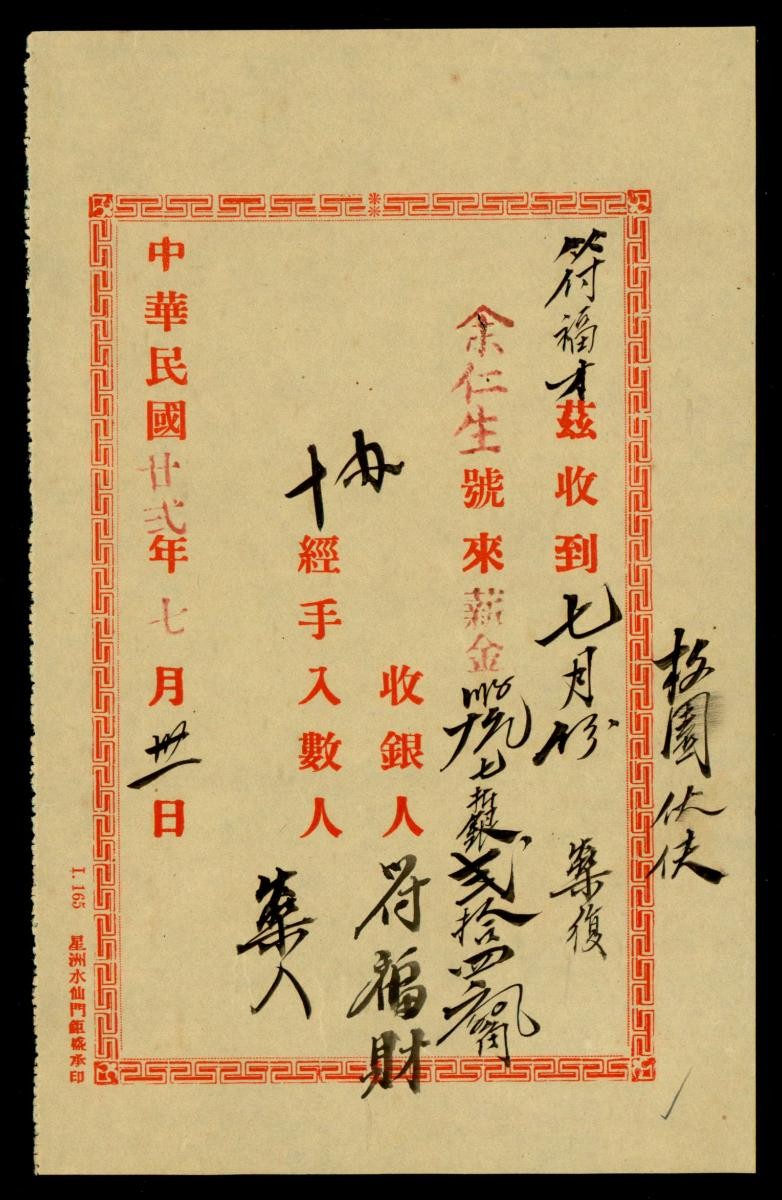 枚園伙伕
符福才茲收到七月份 葉復
余仁生號來薪金 七折銀弍拾四
收銀人符福財
協
十經手入數人葉人
中華民國廿弍年七月卅一日
I. 165 星洲水仙門鉅盛承印